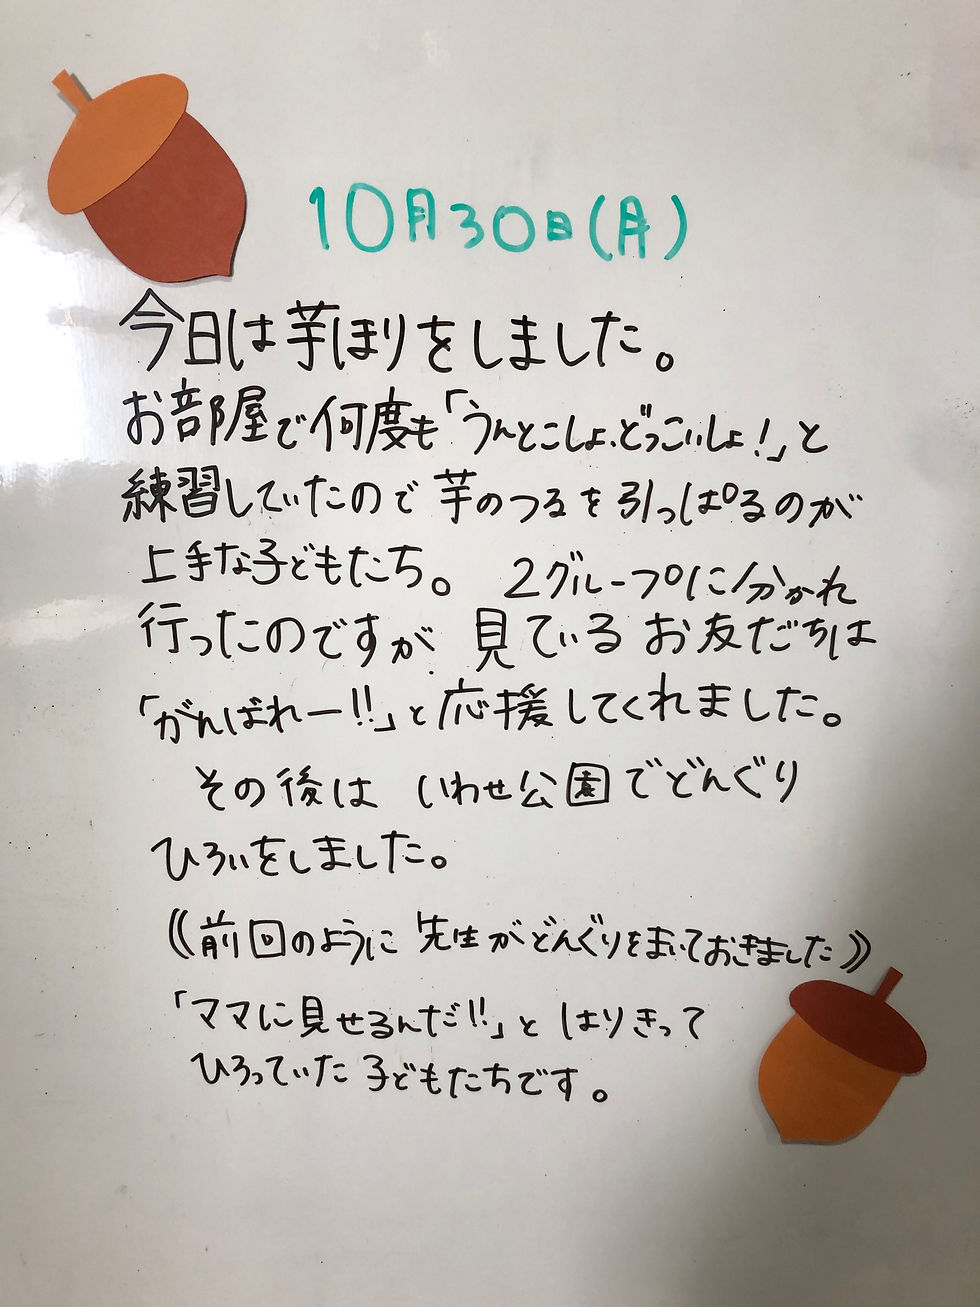 10月30日(月)
今日は芋ほりをしました。
お部屋で何度も「うんとこしょ、どっこいしょ!」と
練習していたので芋のつるを引っぱるのが
上手な子どもたち。 2グループに分かれ
行ったのですが 見ている お友だちは
「がんばれー!!」と応援してくれました。
その後は いわせ公園でどんぐり
ひろいをしました。
《前回のように 先生がどんぐりをまいておきました》
「ママに見せるんだ!!」と はりきって
ひろっていた 子どもたちです。